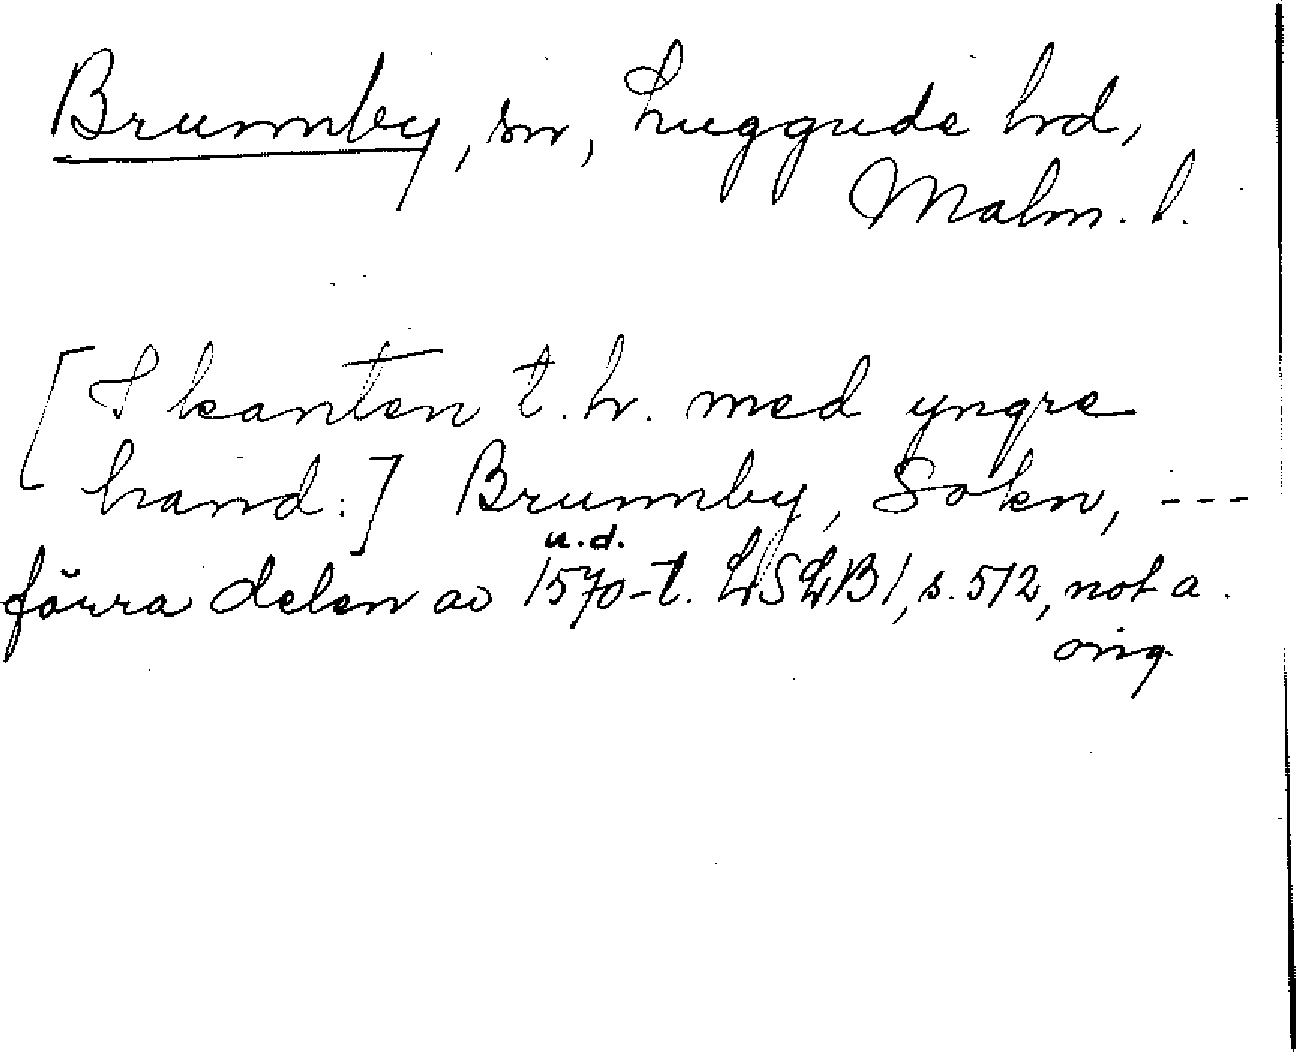 Brunnby, sn, Luggude hd,
Malm. l.
[I kanten t.h. med yngre
hand:] Brunnby, Sokn, ---
u.d.
förra delen av 1570-t. LSLB1, s. 512, not a.
orig.